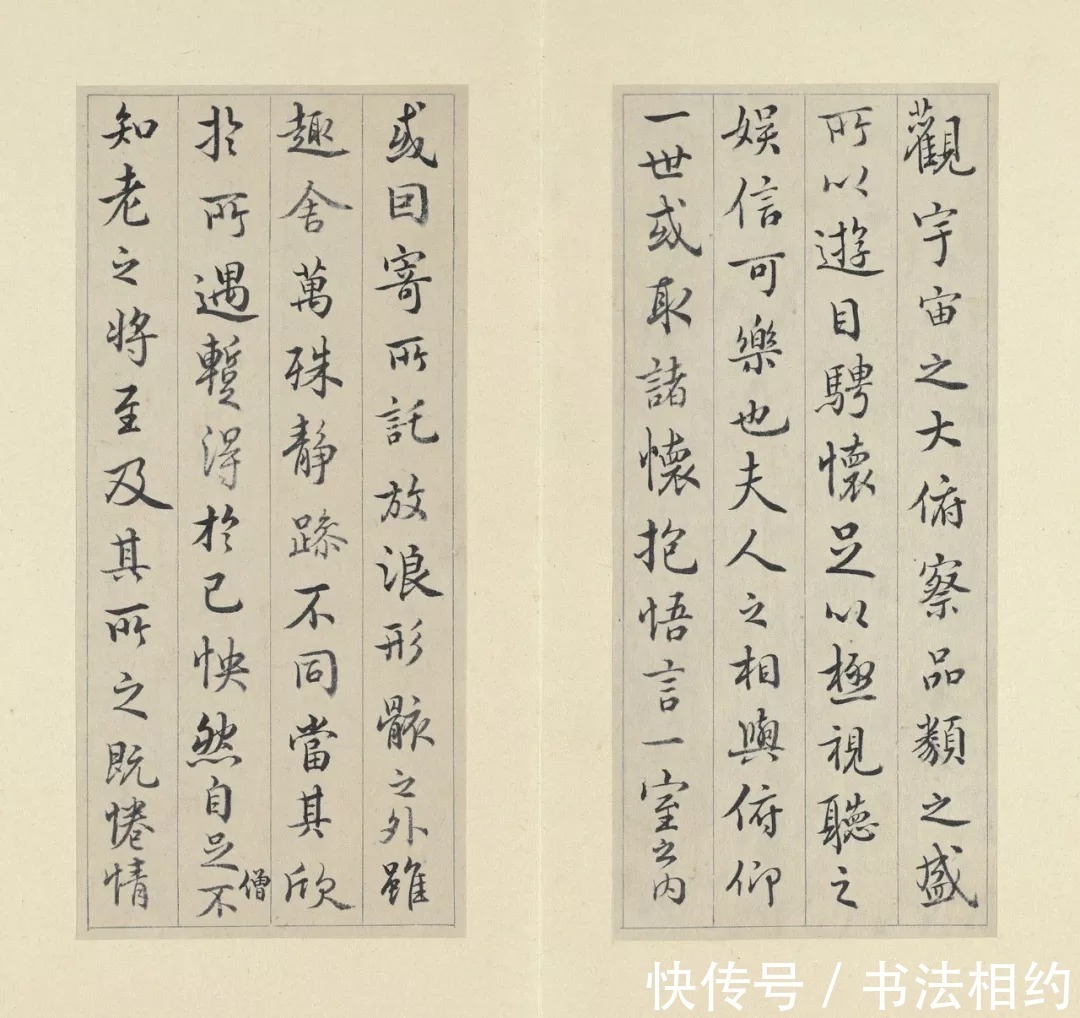 觀宇宙之大俯察品類之盛
所以遊目騁懷足以極視聽之
娱信可樂也夫人之相與俯仰
一世或取諸懷抱悟言一室之内
或因寄所託放浪形骸之外雖
趣舍萬殊静躁不同當其欣
於所遇蹔得於己怏然自足不
僧
知老之将至及其所之既惓情
快传号 / 书法相约